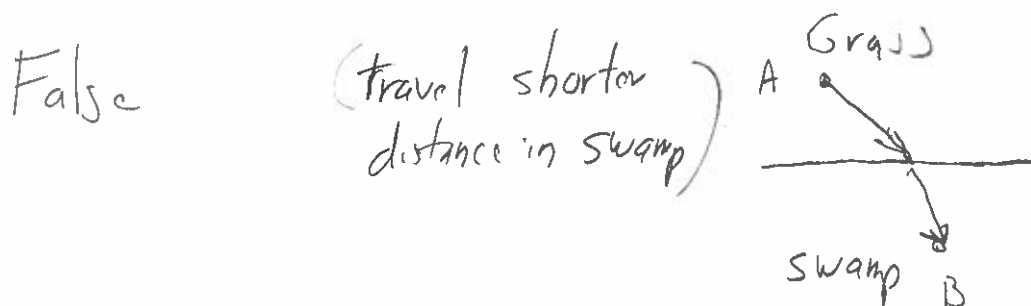 False
(travel shorter
distance in swamp)
Grass
A
swamp
B